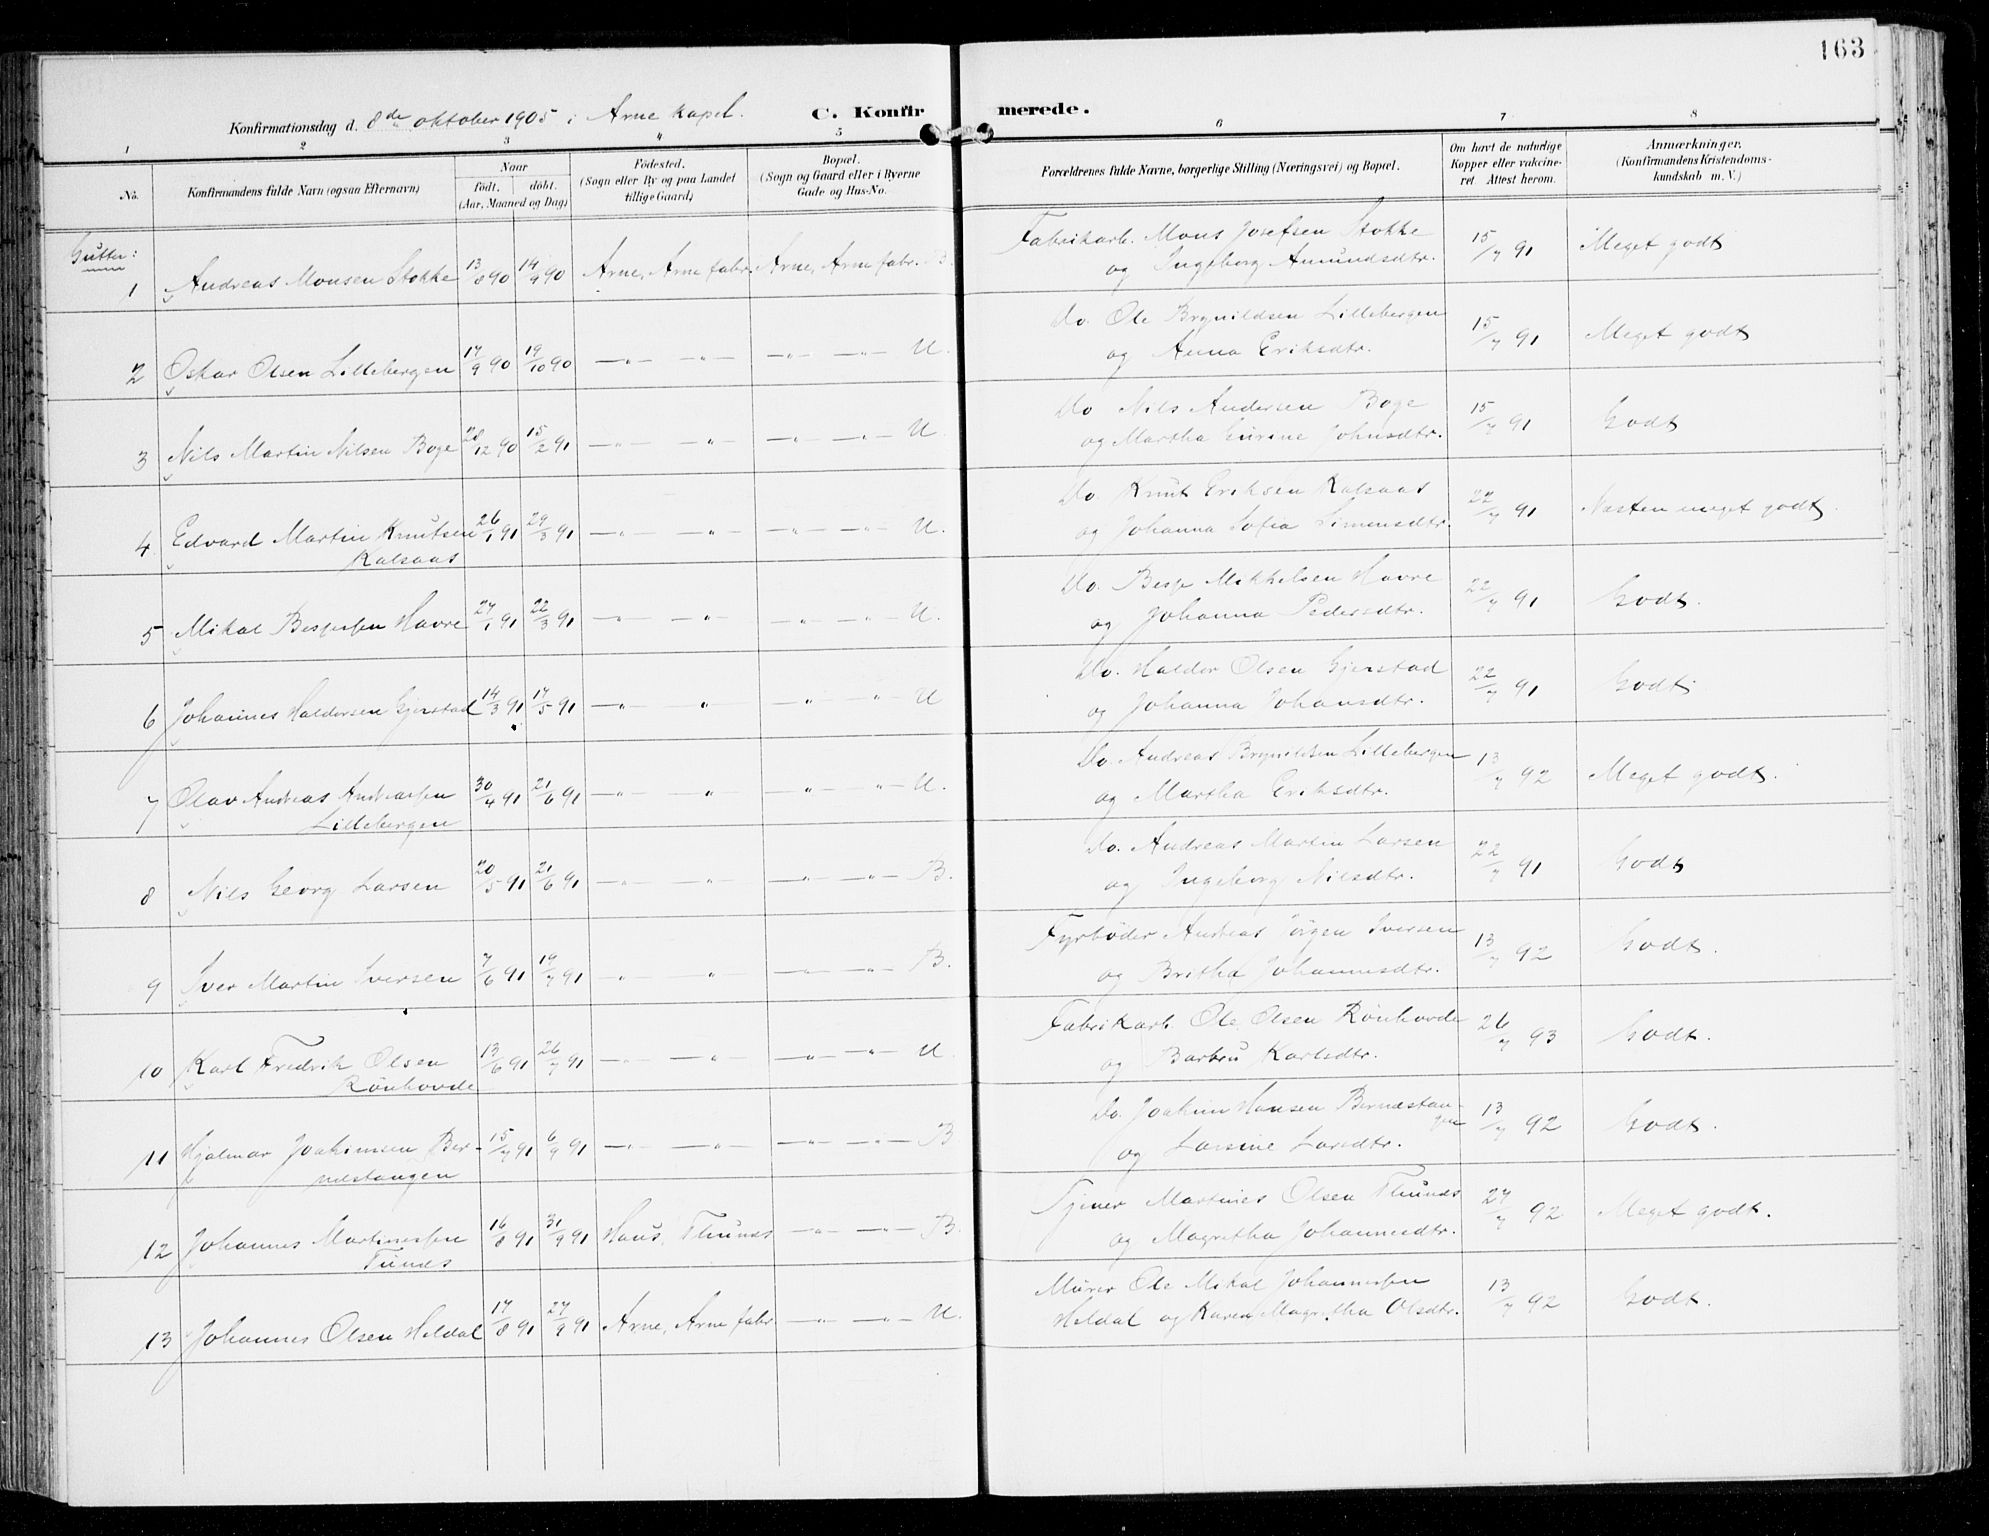 163
C. Konfirmerede.
Konfirmationsdag d. 8de oktober 1905 i Arne kapel.
1 2 3 4 5 6 7 8
No. Konfirmandens fulde Navn (ogsaa Efternavn) Naar födt. döbt. (Aar, Maaned og Dag) Födested. (Sogn eller By og paa Landet tillige Gaard) Bopæl. (Sogn og Gaard eller i Byerne Gade og Hus-No. Forældrenes fulde Navne, borgerlige Stilling (Næringsvei) og Bopæl. Om havt de naturlige Kopper eller vakcineret. Attest herom. Anmærkninger. (Konfirmandens Kristendomskundskab m. V.)
Gutter:
1 Andreas Monsen Stokke 13/8 90 14/9 90 Arne, Arne fabr. Arne, Arne fabr. B. Fabrikarb. Mons Josefsen Stokke
og Ingeborg Amundsdtr. 15/7 91 Meget godt
2 Oskar Olsen Lillebergen 17/9 90 19/10 90 —"— —"— —"— —"— U. Do. Ole Brynildsen Lillebergen
og Anna Eriksdtr. 15/7 91 Meget godt
3 Nils Martin Nilsen Boge 28/12 90 15/2 91 —"— " —"— —"— U. Do Nils Andersen Boge
og Martha Gurine Johnsdtr. 15/7 91 Godt
4 Edvard Martin Knutsen 26/1 91 29/3 91 —"— " —"— —"— U. Do. Knut Eriksen Kalsaas
Kalsaas og Johanna Sofia Simensdtr. 22/7 91 Næsten meget godt.
5 Mikal Bespersen Havre 27/1 91 22/3 91 —"— —"— —"— —"— U. Do. Besp Mikkelsen Havre
og Johanna Pedersdtr. 22/7 91 Godt.
6 Johannes Haldorsen Gjerstad 14/3 91 17/5 91 —"— " " " U Do. Haldor Olsen Gjerstad
og Johanna Johansdtr. 22/7 91 Godt
7 Olav Andreas Andreassen 30/4 91 21/6 91 —"— " " " U. Do. Andreas Brynildsen Lillebergen
Lillebergen og Martha Eriksdtr. 13/7 92 Meget godt.
8 Nils Georg Larsen 20/5 91 21/6 91 —"— " —"— —"— B. Do. Andreas Martin Larsen
og Ingeborg Nilsdtr. 22/7 91 Godt
9 Iver Martin Iversen 7/6 91 19/7 91 " " —"— —"— B. Fyrböder Andreas Jörgen Iversen
og Britha Johannesdtr. 13/7 92 Godt.
10 Karl Fredrik Olsen 13/6 91 26/7 91 —"— —"— —"— —"— U. Fabrikarb. Ole Olsen Rönhovde
Rönhovde og Barbru Karlsdtr. 26/7 93 Godt.
11 Hjalmar Joakimsen Ber- 15/7 91 6/9 91 —"— —"— —"— —"— B. Do. Joakim Hansen Bernæstan-
næstangen gen og Larsine Larsdtr. 13/7 92 Godt.
12 Johannes Martinessen 16/8 91 31/9 91 Haus, Thunæs —"— —"— B. Tjener Martines Olsen Thunæs
Tunæs og Magretha Johannesdtr. 27/7 92 Meget godt.
13 Johannes Olsen Heldal 17/8 91 27/9 91 Arne, Arne fabr. —"— —"— U. Murer Ole Mikal Johannessen
Heldal og Karen Magretha Olsdtr. 13/7 92 Godt.